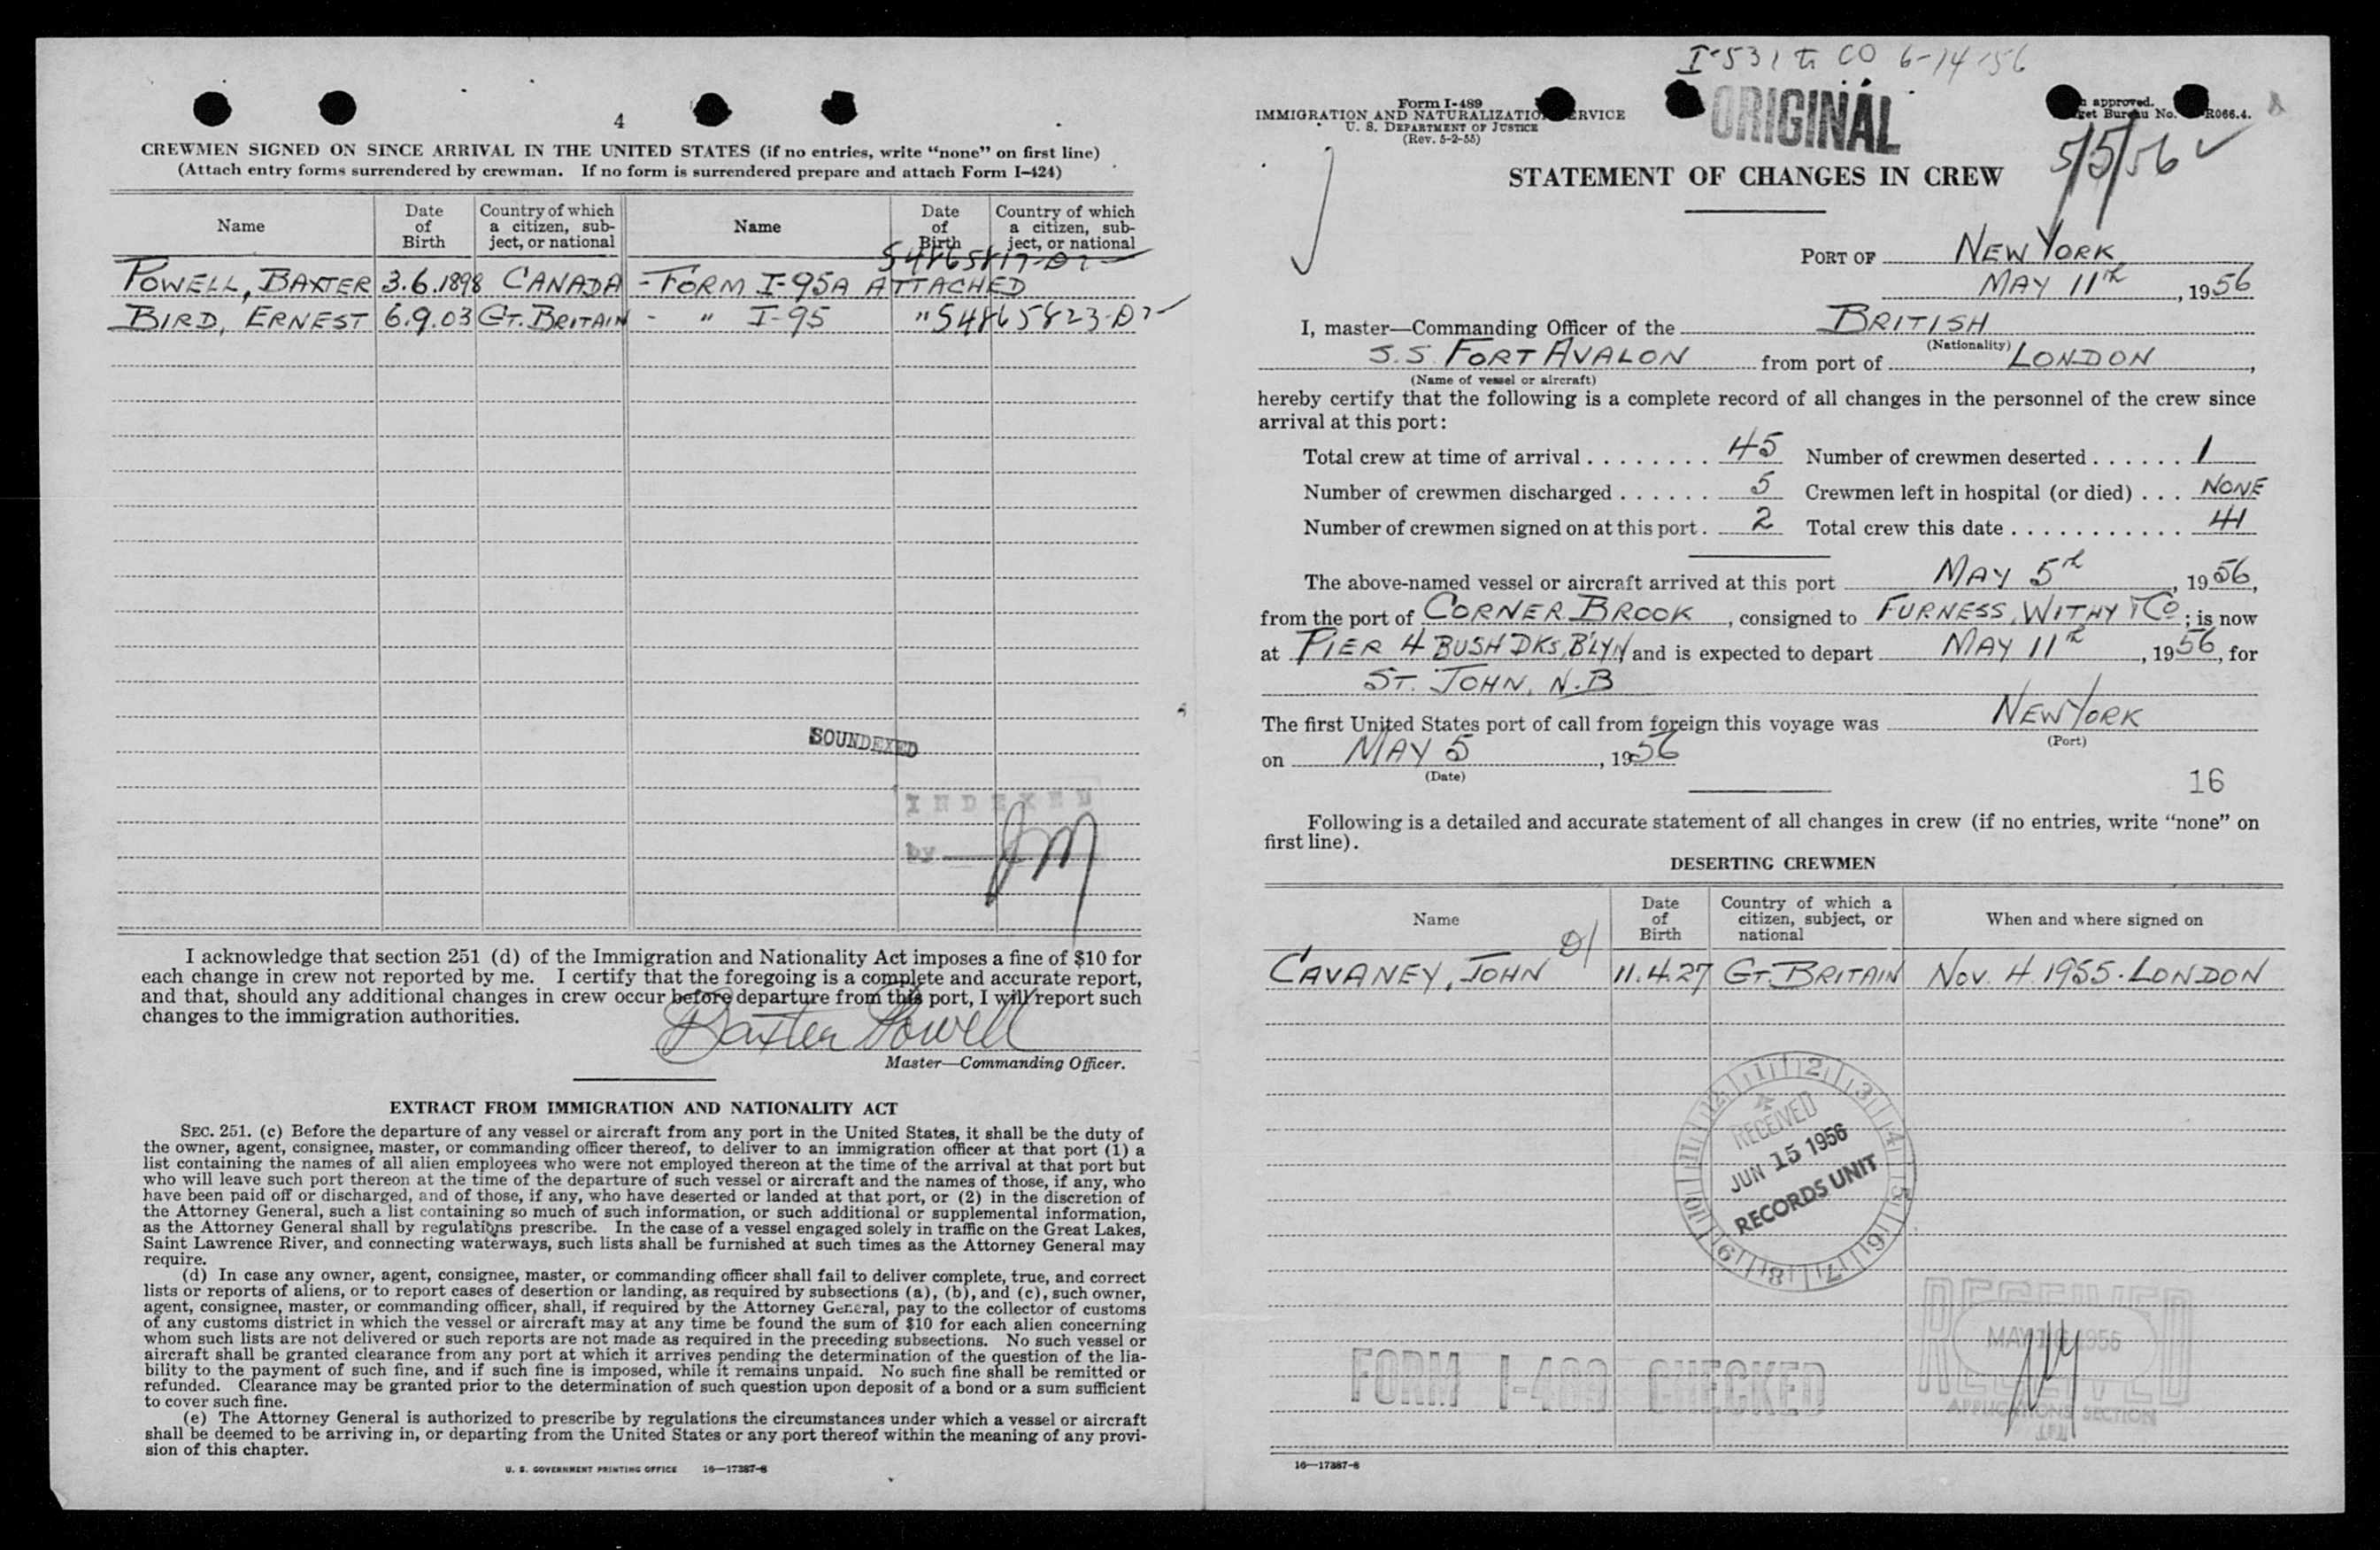 4
CREWMEN SIGNED ON SINCE ARRIVAL IN THE UNITED STATES (if no entries, write "none" on first line)
(Attach entry forms surrendered by crewman. If no form is surrendered prepare and attach Form I-424)
Name | Date of Birth | Country of which a citizen, subject, or national | Name | Date of Birth | Country of which a citizen, sub-ject, or national
POWELL, BAXTER 3.6.1898 CANADA - FORM I-95A ATTACHED
BIRD, ERNEST 6.9.03 GT. BRITAIN - " I-95 "
SOUNDEXED
INDEXED
by
I acknowledge that section 251 (d) of the Immigration and Nationality Act imposes a fine of $10 for
each change in crew not reported by me. I certify that the foregoing is a complete and accurate report,
and that, should any additional changes in crew occur before departure from this port, I will report such
changes to the immigration authorities.
Baxter Powell
Master—Commanding Officer.
EXTRACT FROM IMMIGRATION AND NATIONALITY ACT
SEC. 251. (c) Before the departure of any vessel or aircraft from any port in the United States, it shall be the duty of
the owner, agent, consignee, master, or commanding officer thereof, to deliver to an immigration officer at that port (1) a
list containing the names of all alien employees who were not employed thereon at the time of the arrival at that port but
who will leave such port thereon at the time of the departure of such vessel or aircraft and the names of those, if any, who
have been paid off or discharged, and of those, if any, who have deserted or landed at that port, or (2) in the discretion of
the Attorney General, such a list containing so much of such information, or such additional or supplemental information,
as the Attorney General shall by regulations prescribe. In the case of a vessel engaged solely in traffic on the Great Lakes,
Saint Lawrence River, and connecting waterways, such lists shall be furnished at such times as the Attorney General may
require.
(d) In case any owner, agent, consignee, master, or commanding officer shall fail to deliver complete, true, and correct
lists or reports of aliens, or to report cases of desertion or landing, as required by subsections (a), (b), and (c), such owner,
agent, consignee, master, or commanding officer, shall, if required by the Attorney General, pay to the collector of customs
of any customs district in which the vessel or aircraft may at any time be found the sum of $10 for each alien concerning
whom such lists are not delivered or such reports are not made as required in the preceding subsections. No such vessel or
aircraft shall be granted clearance from any port at which it arrives pending the determination of the question of the lia-
bility to the payment of such fine, and if such fine is imposed, while it remains unpaid. No such fine shall be remitted or
refunded. Clearance may be granted prior to the determination of such question upon deposit of a bond or a sum sufficient
to cover such fine.
(e) The Attorney General is authorized to prescribe by regulations the circumstances under which a vessel or aircraft
shall be deemed to be arriving in, or departing from the United States or any port thereof within the meaning of any provi-
sion of this chapter.
U. S. GOVERNMENT PRINTING OFFICE 16—17387-8
I-531 to CO 6-14-56
Form I-489
IMMIGRATION AND NATURALIZATION SERVICE
U. S. DEPARTMENT OF JUSTICE
(Rev. 5-2-55)
ORIGINAL
approved.
Bureau No. R066.4.
5/5/56
STATEMENT OF CHANGES IN CREW
PORT OF NEW YORK
MAY 11th, 1956
I, master—Commanding Officer of the BRITISH
(Nationality)
S.S. FORT AVALON from port of LONDON,
(Name of vessel or aircraft)
hereby certify that the following is a complete record of all changes in the personnel of the crew since
arrival at this port:
Total crew at time of arrival . . . . . . . . 45 Number of crewmen deserted . . . . . . 1
Number of crewmen discharged . . . . . . 5 Crewmen left in hospital (or died) . . . NONE
Number of crewmen signed on at this port . 2 Total crew this date . . . . . . . . . . . 41
The above-named vessel or aircraft arrived at this port MAY 5th, 1956,
from the port of CORNER BROOK, consigned to FURNESS, WITHY & Co; is now
at PIER 4 BUSH DKS, B'LYN and is expected to depart MAY 11th, 1956, for
ST. JOHN, N.B
The first United States port of call from foreign this voyage was NEW YORK
(Port)
on MAY 5, 1956
(Date)
16
Following is a detailed and accurate statement of all changes in crew (if no entries, write "none" on
first line).
DESERTING CREWMEN
Name | Date of Birth | Country of which a citizen, subject, or national | When and where signed on
CAVANEY, JOHN 11.4.27 GT. BRITAIN NOV. 4. 1955. LONDON
RECEIVED
JUN 15 1956
RECORDS UNIT
RECEIVED
APPLICATIONS SECTION
FORM I-489 CHECKED
16—17387-8